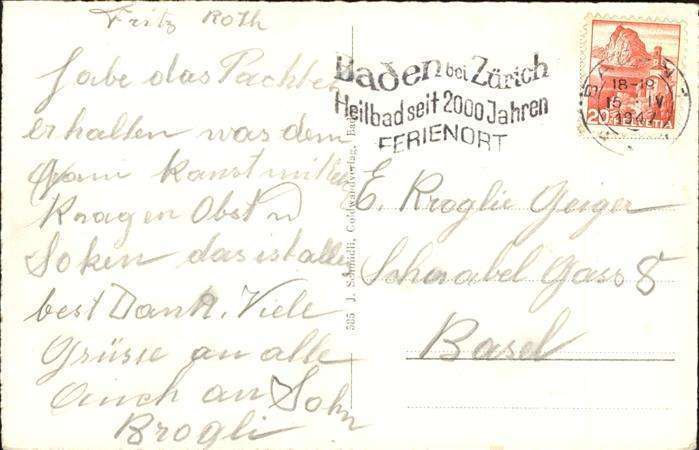 Fritz Roth
Habe das Packten
erhalten was dem
kanst mit
Kragen Obst u
Soken das ist alles
best Dank. Viele
Grüsse an alle
Auch an Sohn
Brogli
585 J. Schmidli, Goldwandverlag, Baden
Baden bei Zürich
Heilbad seit 2000 Jahren
FERIENORT
BADEN
18-19
15 IV
1947
20 HELVETIA
E. Kroglie Geiger
Schnabel Gass 8
Basel